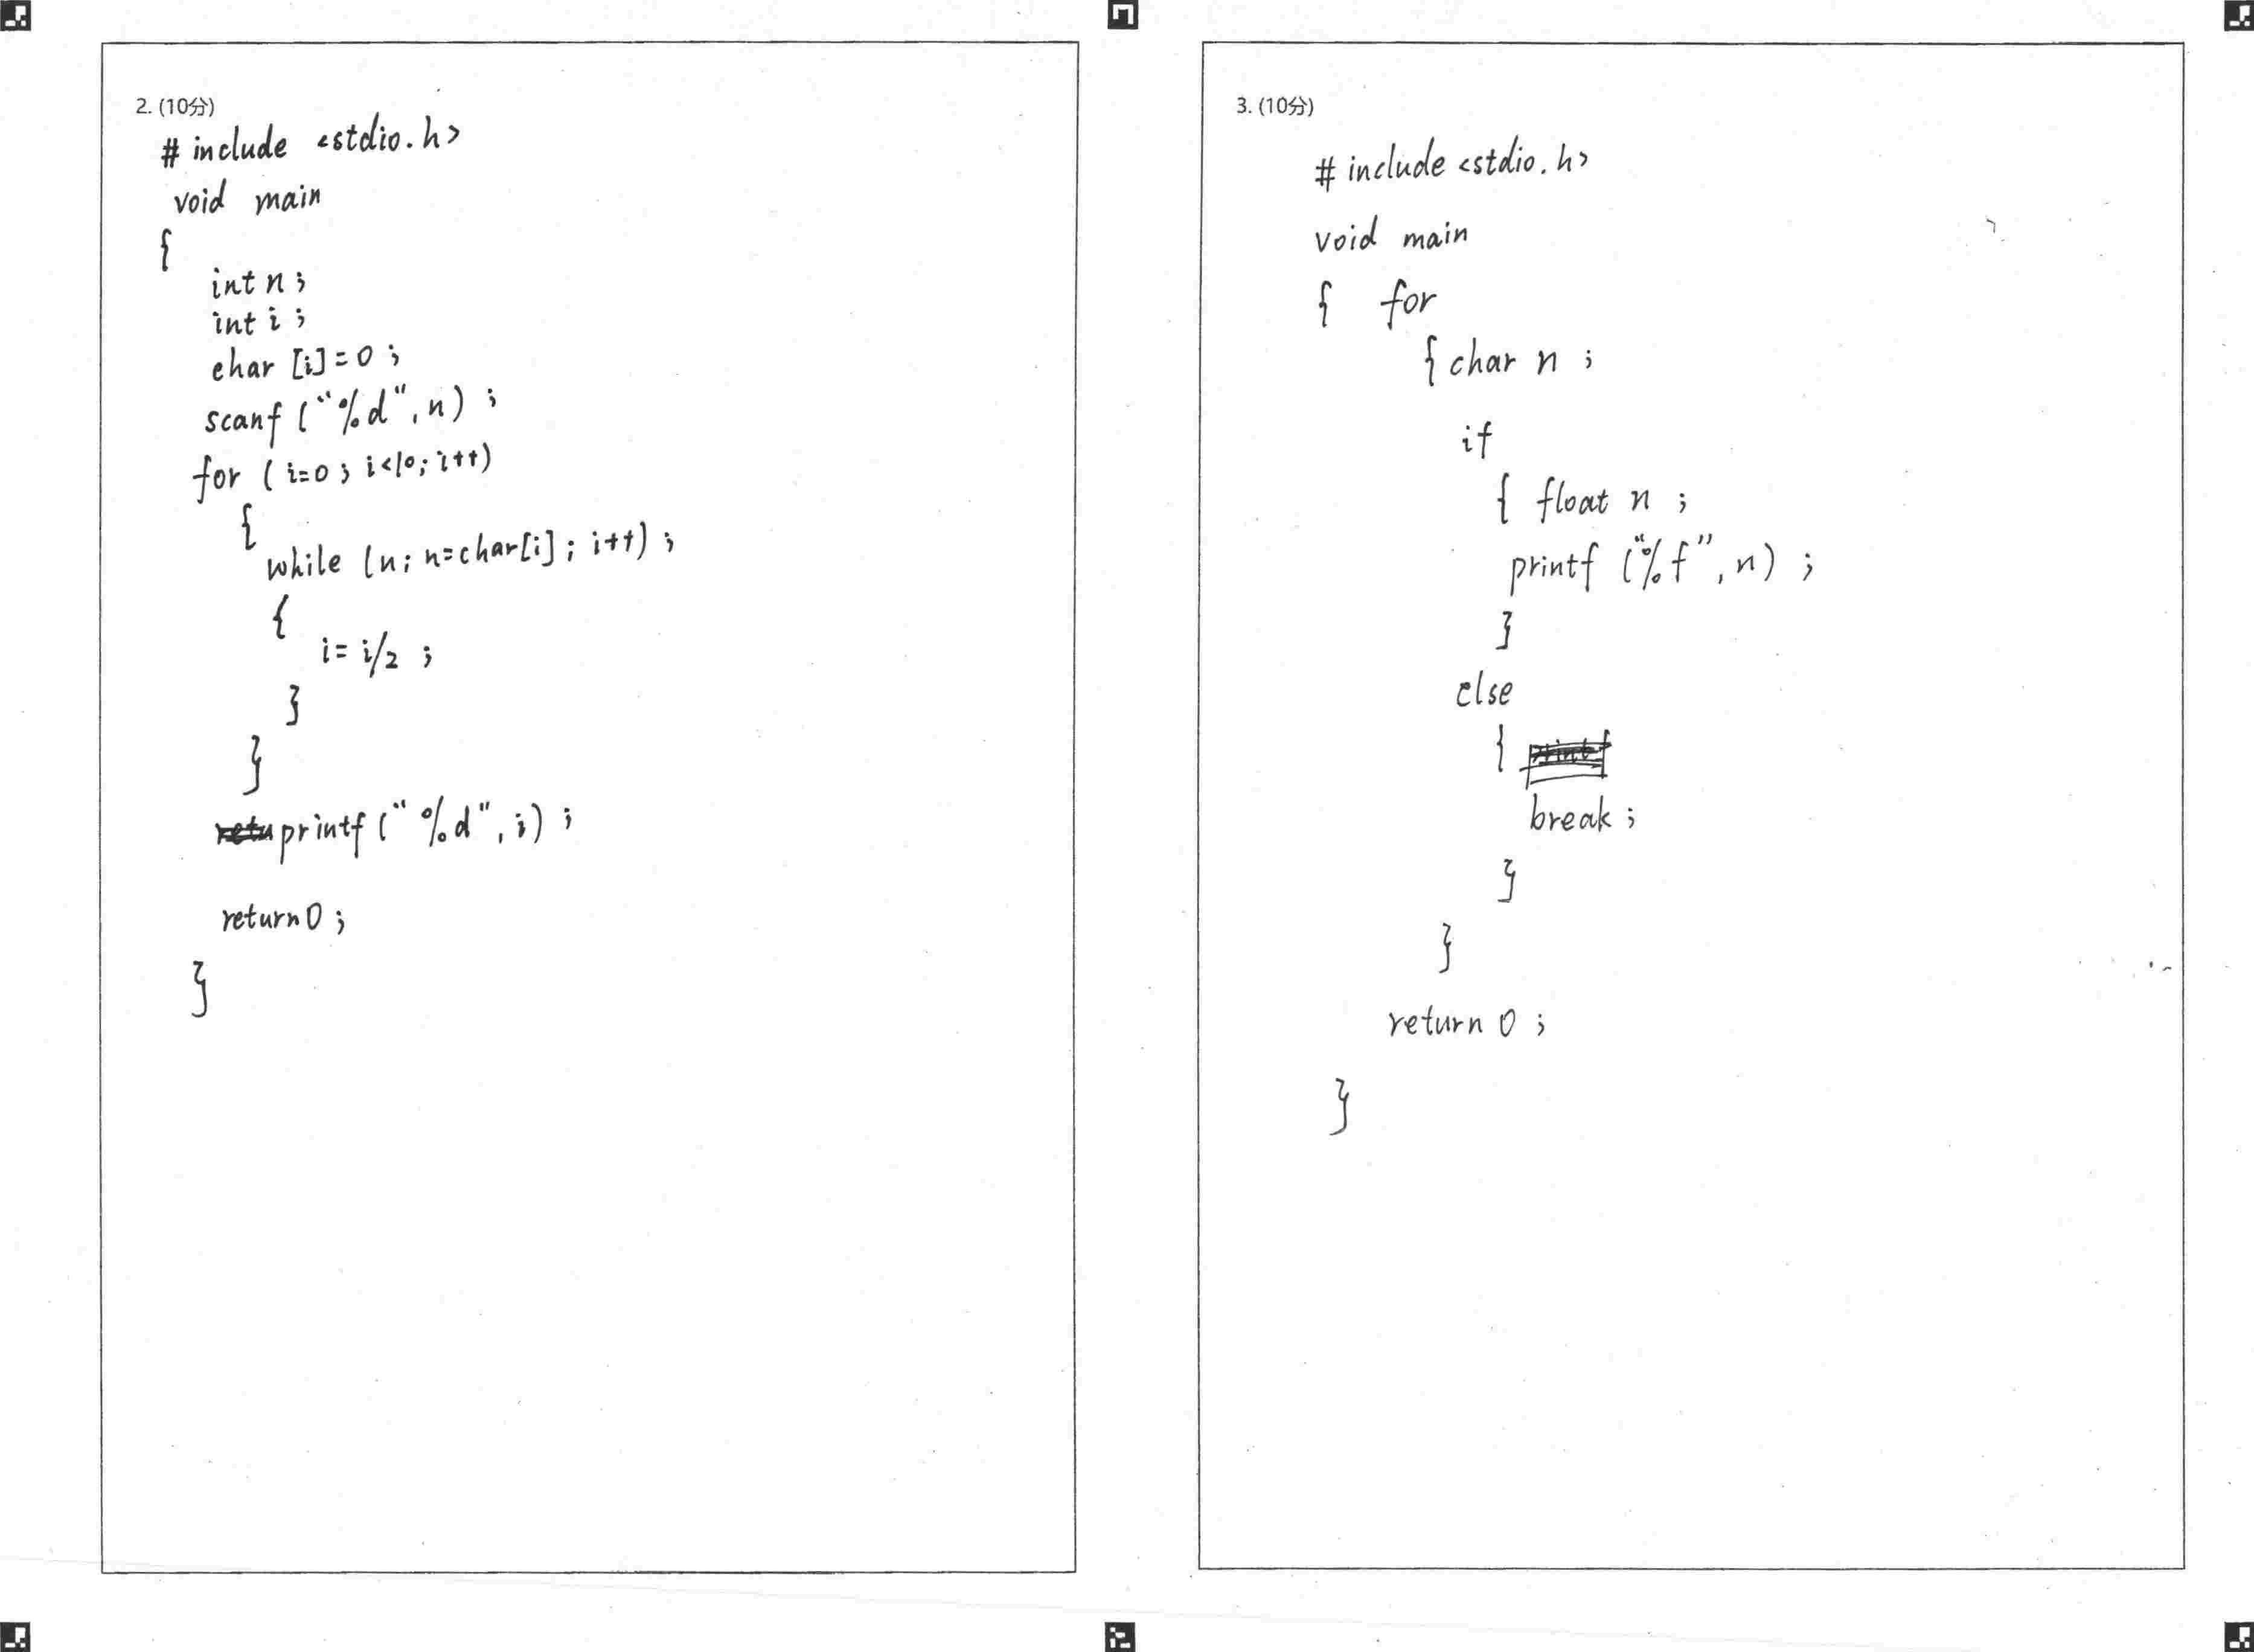 2. (10分)
# include <stdio.h>
void main
{
int n ;
int i ;
char [i]=0 ;
scanf ("%d", n) ;
for ( i=0 ; i<10; i++)
{
while (n; n=char[i] ; i++) ;
{
i= i/2 ;
}
}
printf ("%d", i) ;
return 0 ;
}
3. (10分)
# include <stdio.h>
void main
{ for
{ char n ;
if
{ float n ;
printf ("%f", n) ;
}
else
{
break ;
}
}
return 0 ;
}